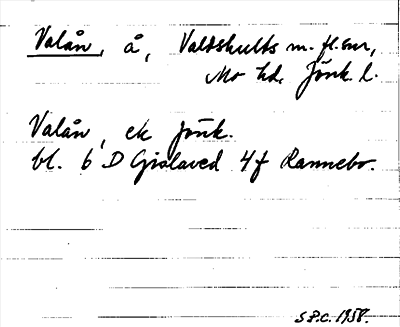 Valån, å, Valdshults m. fl. snr,
Mo hd, Jönk. l.
Valån, ek Jönk.
bl. 6 D Gislaved 4f Rannebo.
S.P.C. 1958.